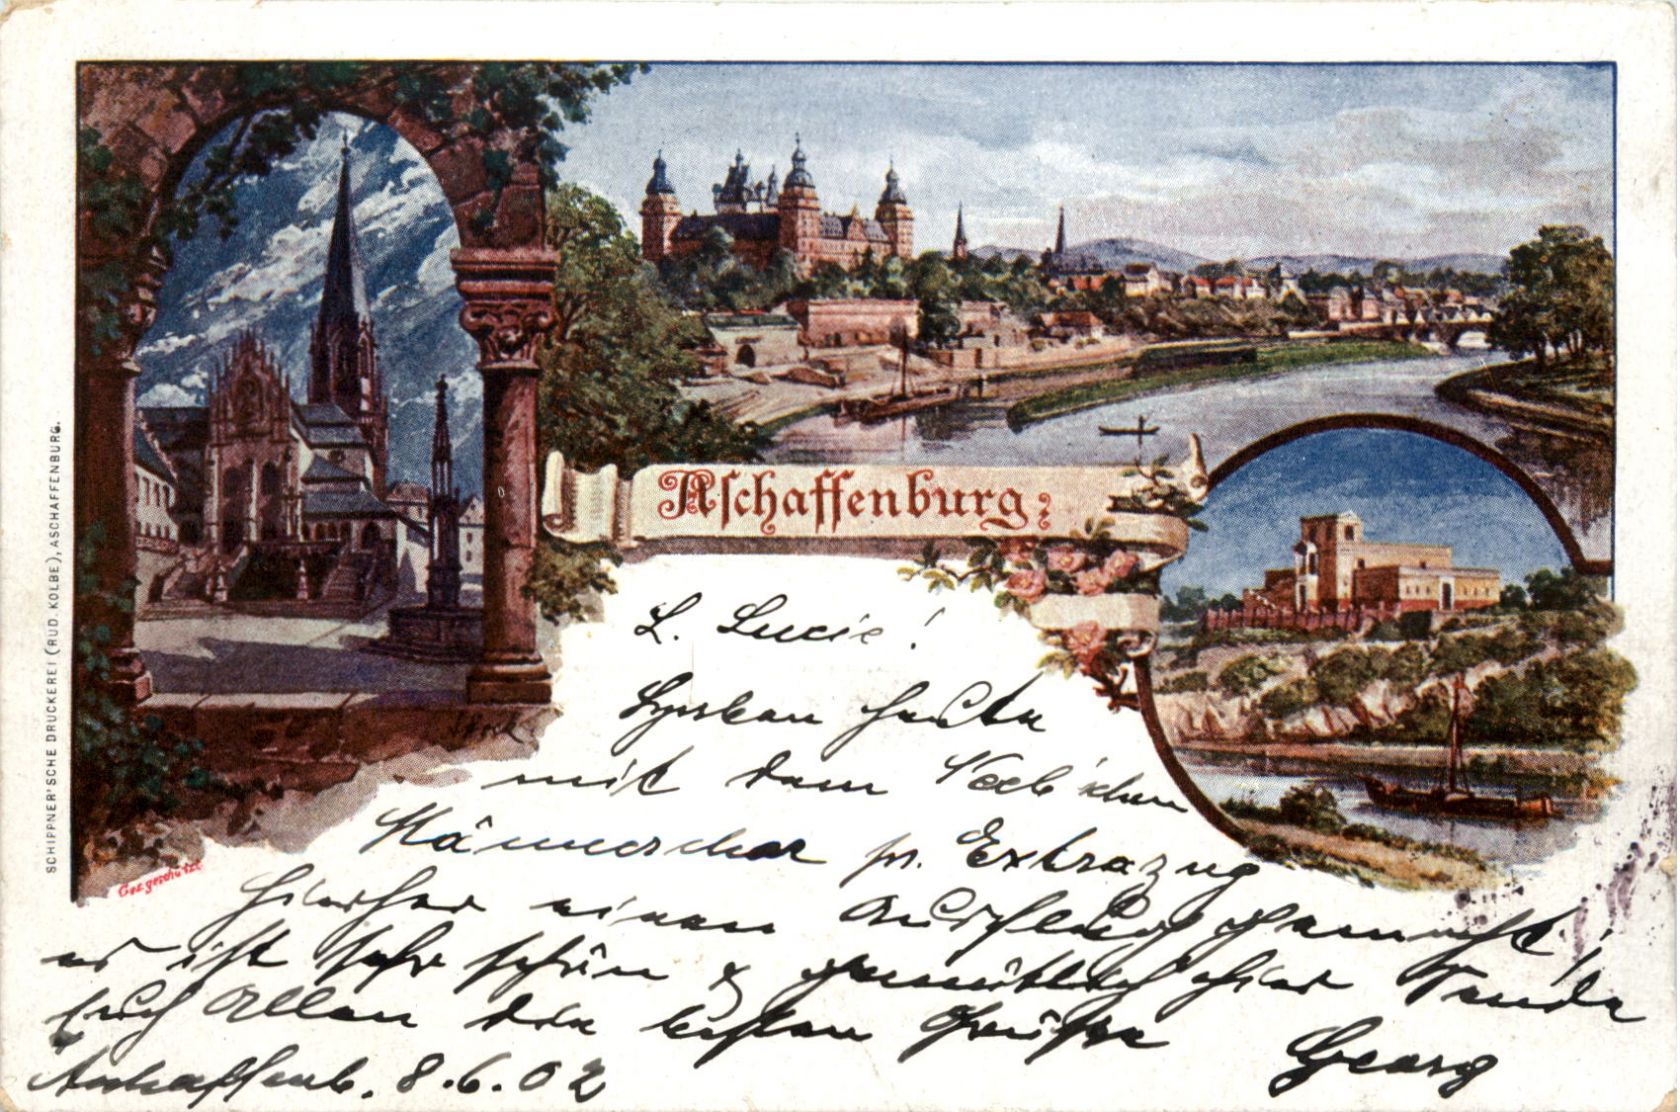 SCHIPPNER'SCHE DRUCKEREI (RUD. KOLBE), ASCHAFFENBURG.
Aschaffenburg
Ges. geschützt
L. Lucie!
Ich habe heute
mit dem
Männerchor pr. Extrazug
hierher einen Ausflug gemacht!
es ist sehr schön & gemütlich hier Sende
Euch Allen die besten Grüße
Georg
Aschaffenb. 8.6.02